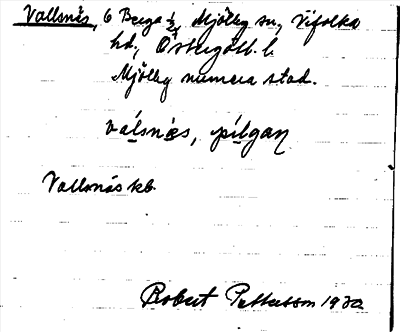 Vallsnäs, 6 Berga 1/4 Mjölby sn, Vifolka
hd, Östergötl. l.
Mjölby numera stad.
válsnäs, pílgaŋ
Vallsnäs kb.
Robert Pettersson 1932